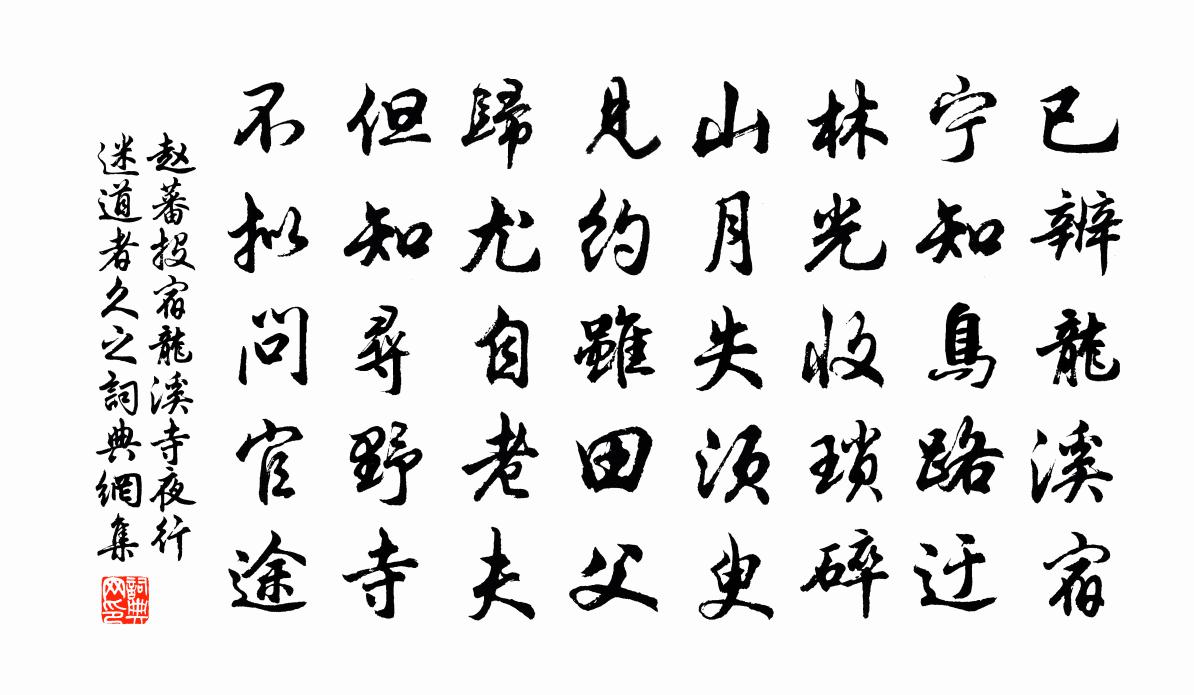 已辨龍溪宿
宁知鳥路迂
林光收瑣碎
山月失須臾
見約雖田父
歸尤自老夫
但知尋野寺
不拟问官途
赵蕃投宿龍溪寺夜行
迷道者久之詞典網集
詞典
网印